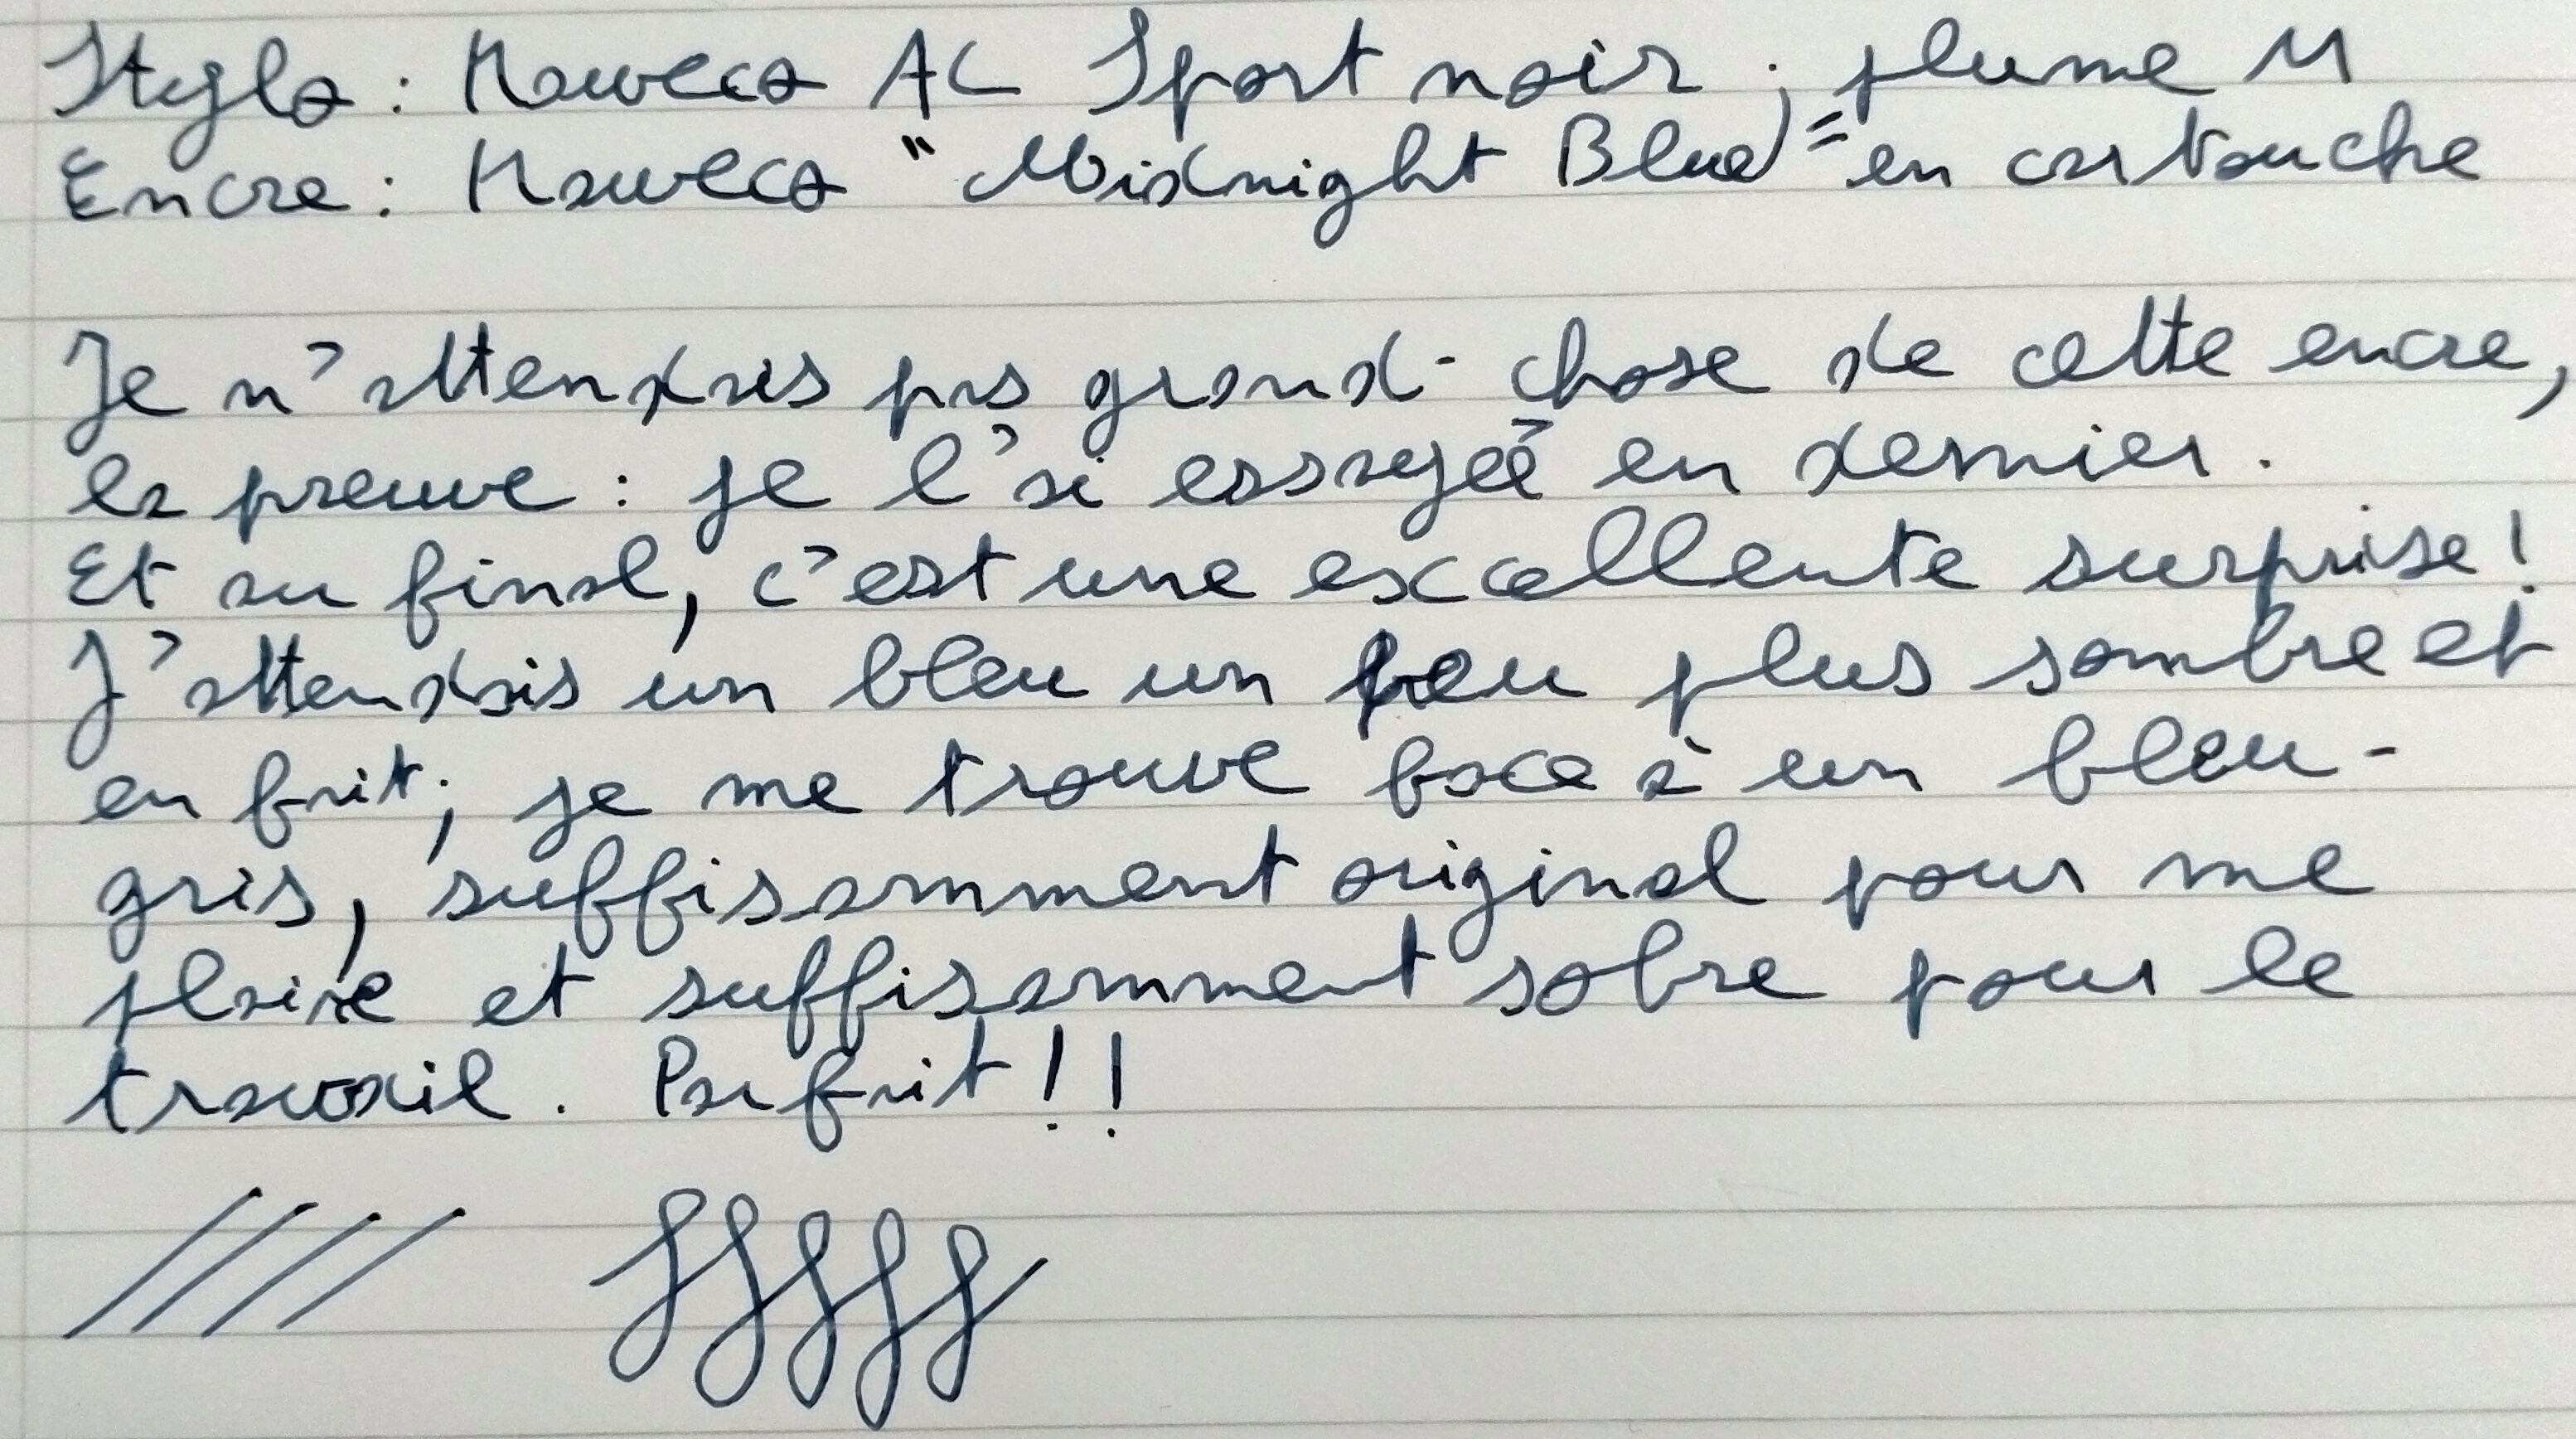 Stylo : Kaweco AC Sport noir ; plume M
Encre : Kaweco "Midnight Blue" en cartouche
Je n'attendais pas grand-chose de cette encre,
la preuve : je l'ai essayée en dernier.
Et au final, c'est une excellente surprise !
J'attendais un bleu un peu plus sombre et
en fait, je me trouve face à un bleu-
gris, suffisamment original pour me
plaire et suffisamment sobre pour le
travail. Parfait !!